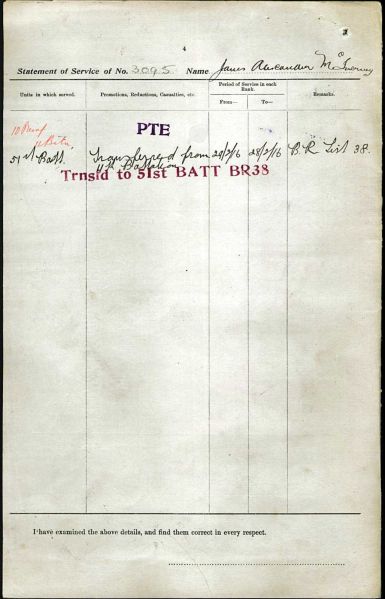 4
Statement of Service of No. 3095 Name James Alexander McInerney
Period of Service in each
Rank.
Units in which served. Promotions, Reductions, Casualties, etc. Remarks.
From— To—
PTE
10 Reinf
11 Batn
51st Batt. Transferred from 28/2/16 28/2/16 B.R. List 38.
11th Battalion
Trnsfd to 51st BATT BR38
I have examined the above details, and find them correct in every respect.